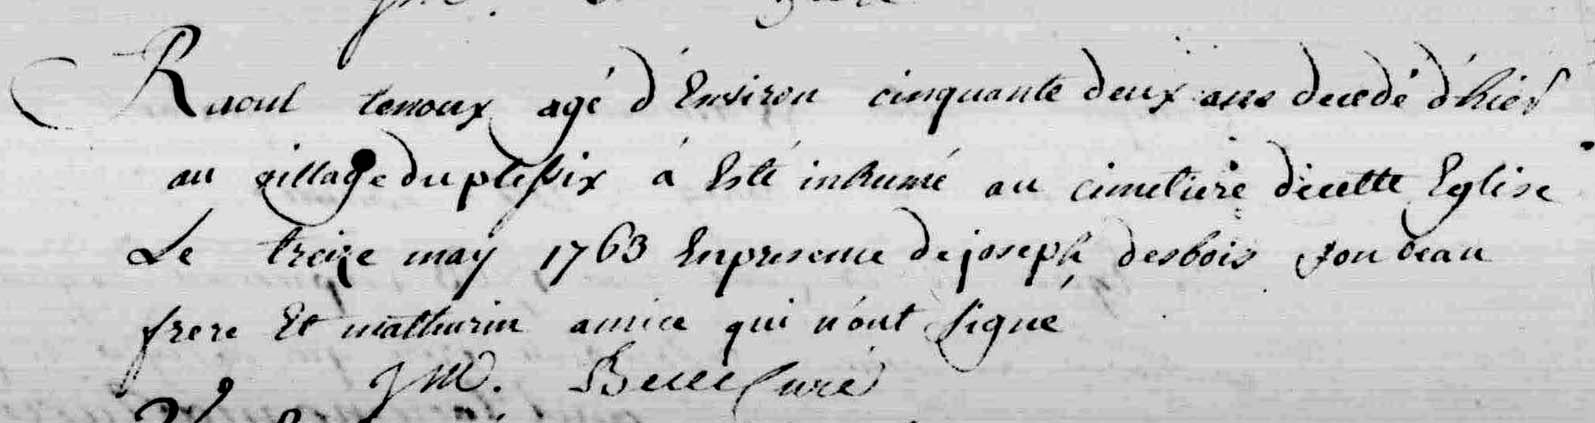 Raoul tenoux agé d'Environ cinquante deux ans decedé d'hier
au village du plessix a Esté inhumé au cimetiere d'icette Eglise
Le treize may 1763 En presence de joseph desbois son beau
frere Et mathurin amice qui n'ont signé
JM. Curé